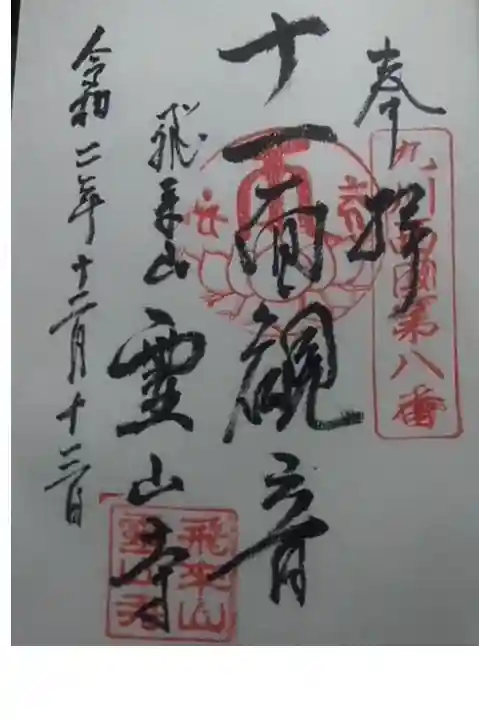 奉拝
九州西國第八番
十一面観音
飛来山
霊山寺
令和二年十二月十三日
飛来山
霊山寺